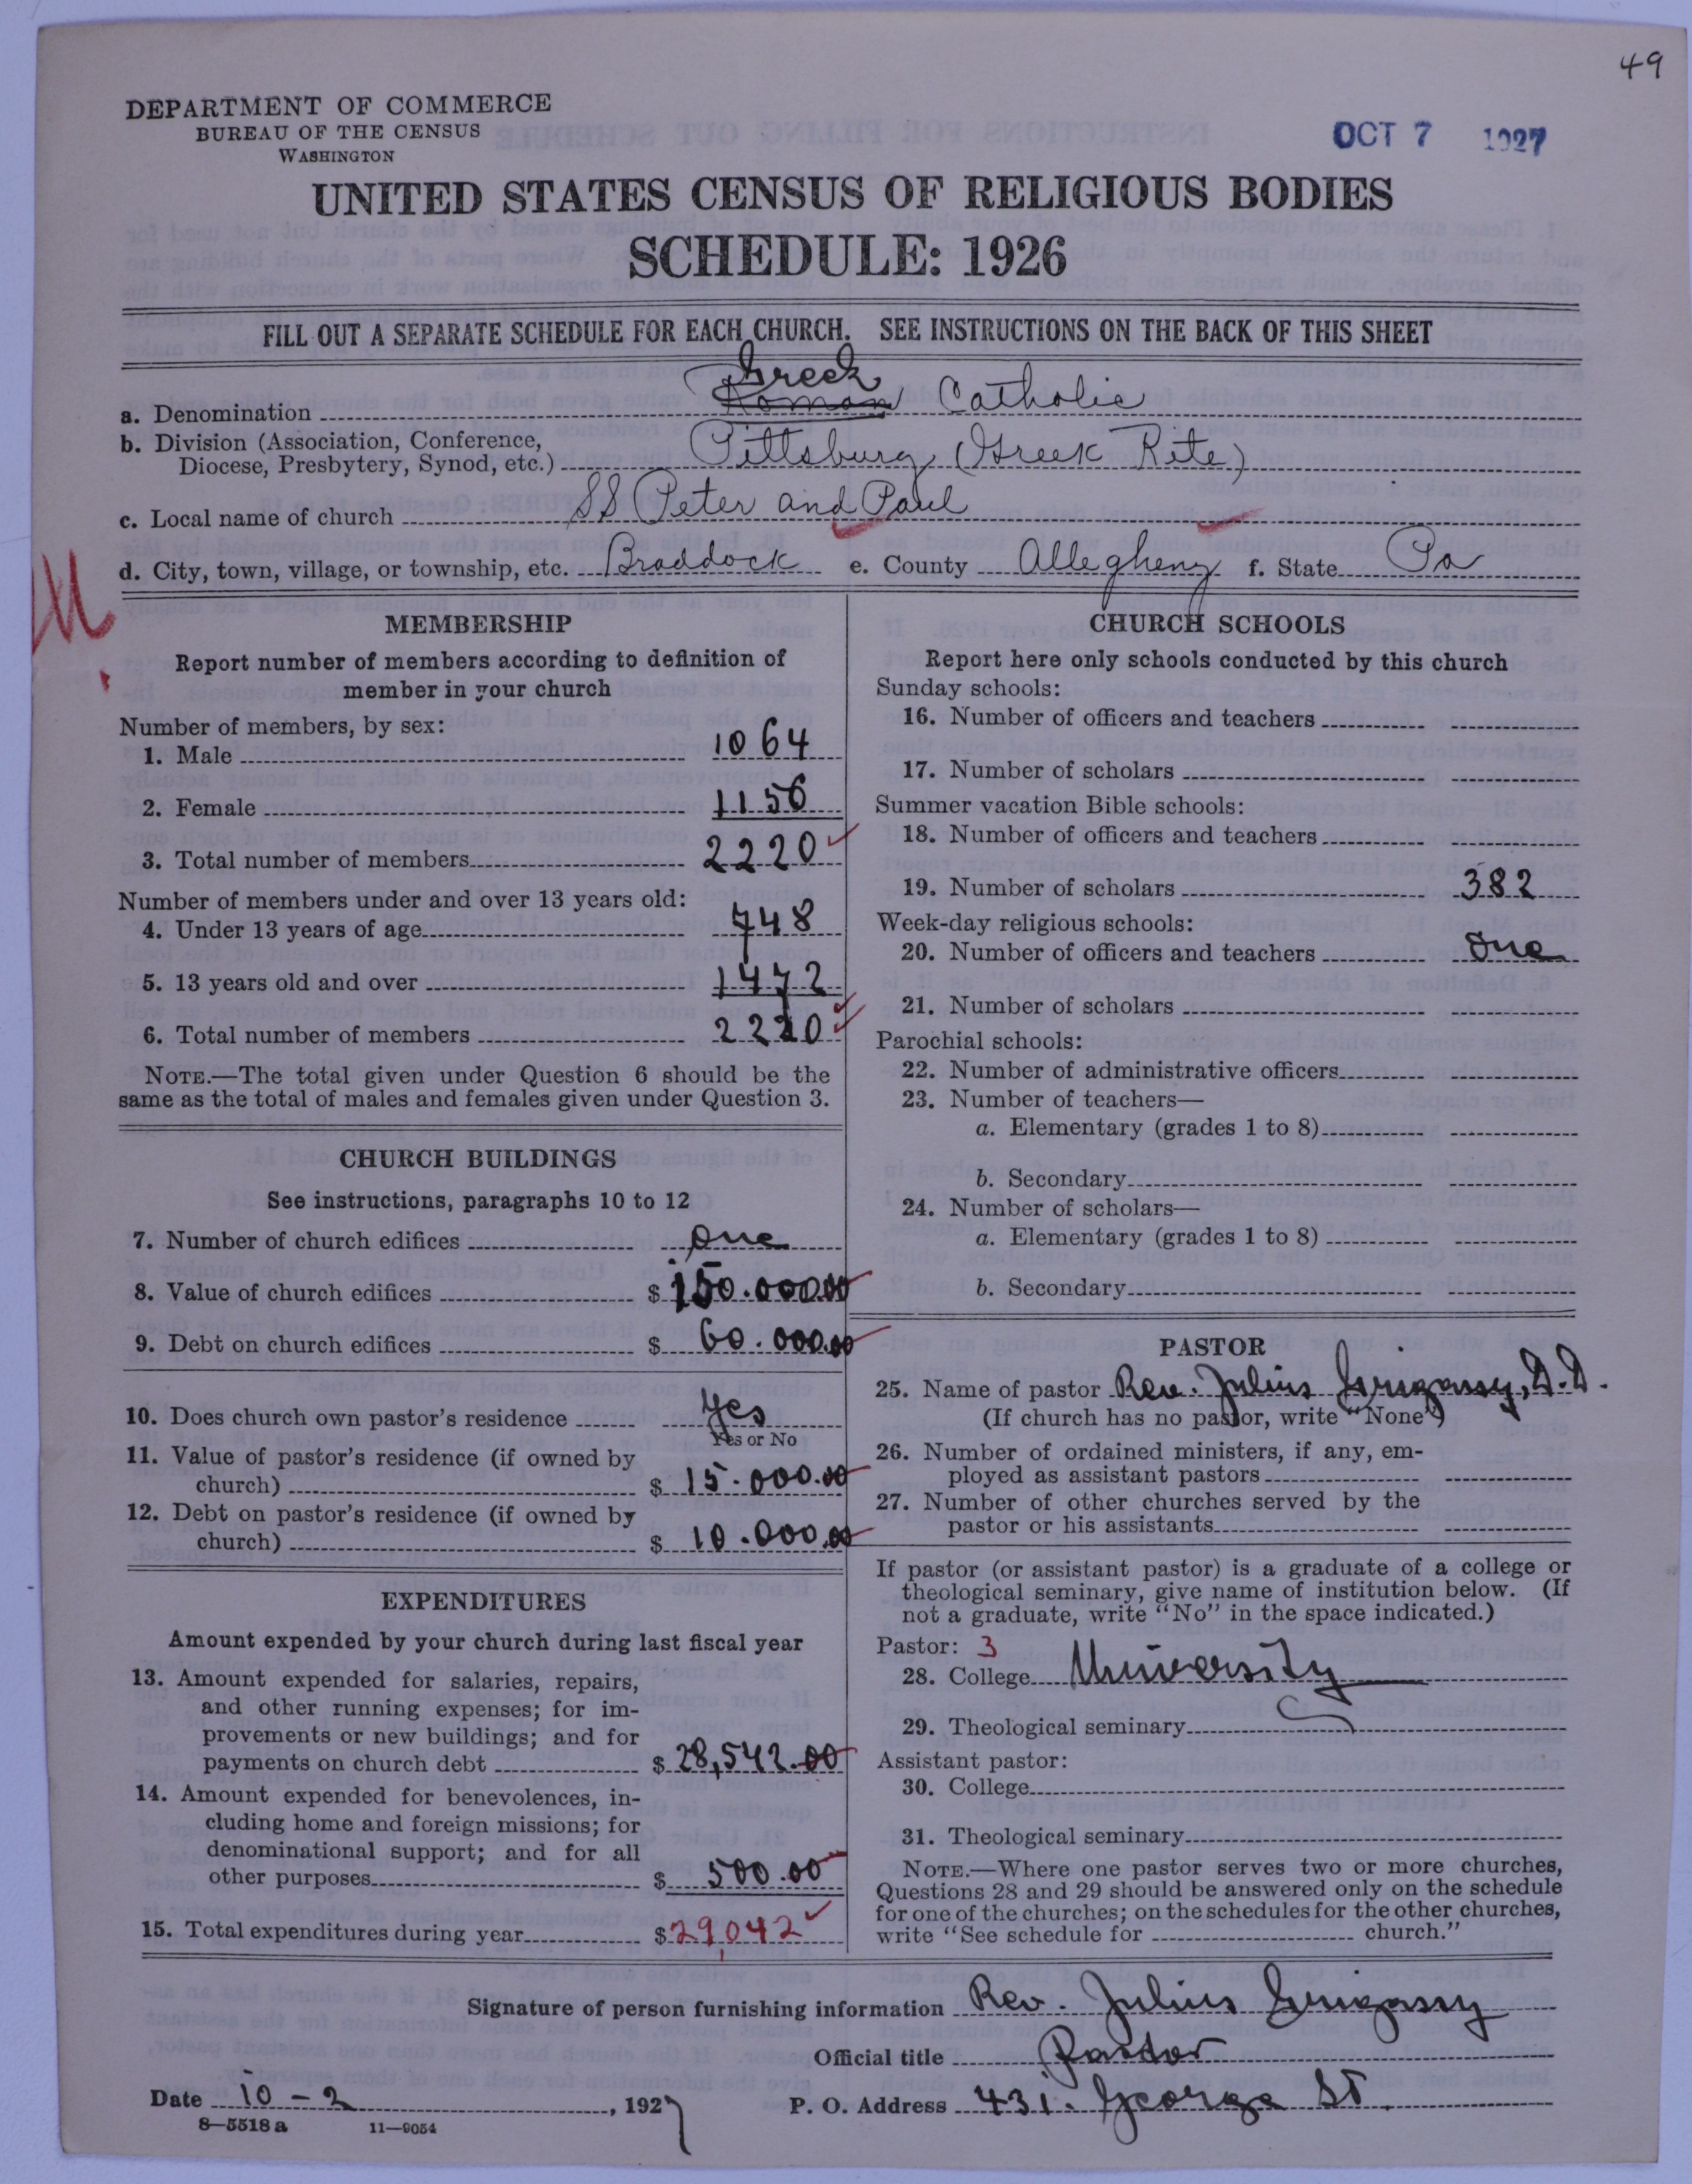 49
DEPARTMENT OF COMMERCE
BUREAU OF THE CENSUS
WASHINGTON
OCT 7 1927
UNITED STATES CENSUS OF RELIGIOUS BODIES
SCHEDULE: 1926
FILL OUT A SEPARATE SCHEDULE FOR EACH CHURCH. SEE INSTRUCTIONS ON THE BACK OF THIS SHEET
Greek
a. Denomination Roman Catholic
b. Division (Association, Conference,
Diocese, Presbytery, Synod, etc.) Pittsburg (Greek Rite)
c. Local name of church SS Peter and Paul
d. City, town, village, or township, etc. Braddock e. County Allegheny f. State Pa
MEMBERSHIP
Report number of members according to definition of
member in your church
Number of members, by sex:
1. Male 1064
2. Female 1156
3. Total number of members 2220
Number of members under and over 13 years old:
4. Under 13 years of age 748
5. 13 years old and over 1472
6. Total number of members 2220
NOTE.—The total given under Question 6 should be the
same as the total of males and females given under Question 3.
CHURCH BUILDINGS
See instructions, paragraphs 10 to 12
7. Number of church edifices one
8. Value of church edifices $ 150.000.00
9. Debt on church edifices $ 60.000.00
10. Does church own pastor's residence Yes
Yes or No
11. Value of pastor's residence (if owned by
church) $ 15.000.00
12. Debt on pastor's residence (if owned by
church) $ 10.000.00
EXPENDITURES
Amount expended by your church during last fiscal year
13. Amount expended for salaries, repairs,
and other running expenses; for im-
provements or new buildings; and for
payments on church debt $ 28,542.00
14. Amount expended for benevolences, in-
cluding home and foreign missions; for
denominational support; and for all
other purposes $ 500.00
15. Total expenditures during year $ 29,042
CHURCH SCHOOLS
Report here only schools conducted by this church
Sunday schools:
16. Number of officers and teachers
17. Number of scholars
Summer vacation Bible schools:
18. Number of officers and teachers
19. Number of scholars 382
Week-day religious schools:
20. Number of officers and teachers one
21. Number of scholars
Parochial schools:
22. Number of administrative officers
23. Number of teachers—
a. Elementary (grades 1 to 8)
b. Secondary
24. Number of scholars—
a. Elementary (grades 1 to 8)
b. Secondary
PASTOR
25. Name of pastor Rev. Julius Grigassy, D.D.
(If church has no pastor, write "None")
26. Number of ordained ministers, if any, em-
ployed as assistant pastors
27. Number of other churches served by the
pastor or his assistants
If pastor (or assistant pastor) is a graduate of a college or
theological seminary, give name of institution below. (If
not a graduate, write "No" in the space indicated.)
Pastor: 3
28. College University
29. Theological seminary
Assistant pastor:
30. College
31. Theological seminary
NOTE.—Where one pastor serves two or more churches,
Questions 28 and 29 should be answered only on the schedule
for one of the churches; on the schedules for the other churches,
write "See schedule for church."
Signature of person furnishing information Rev. Julius Grigassy
Official title Pastor
Date 10-2, 1927 P. O. Address 431. George St.
8-5518 a 11-9054